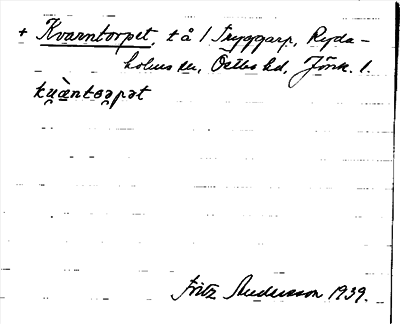 + Kvarntorpet, t å 1 Tryggarp, Ryda-
holms sn, Östbo hd, Jönk. l.
Fritz Andersson 1939.